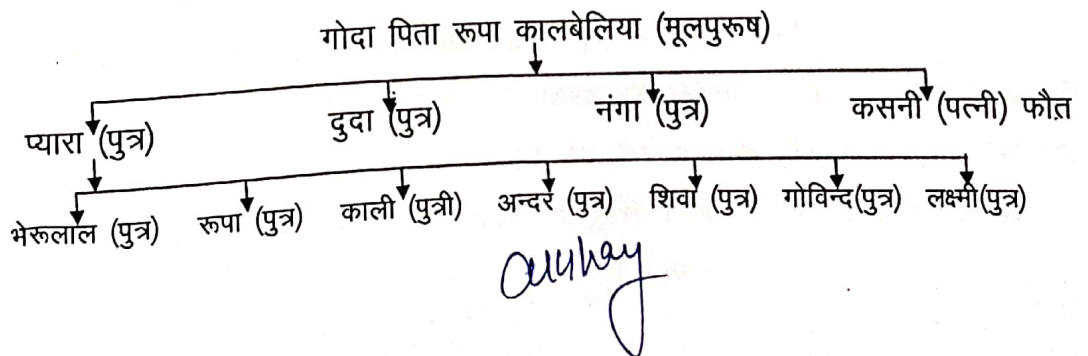 गोदा पिता रूपा कालबेलिया (मूलपुरूष)
प्यारा (पुत्र) दुदा (पुत्र) नंगा (पुत्र) कसनी (पत्नी) फौत
भेरूलाल (पुत्र) रूपा (पुत्र) काली (पुत्री) अन्दर (पुत्र) शिवा (पुत्र) गोविन्द(पुत्र) लक्ष्मी(पुत्र)